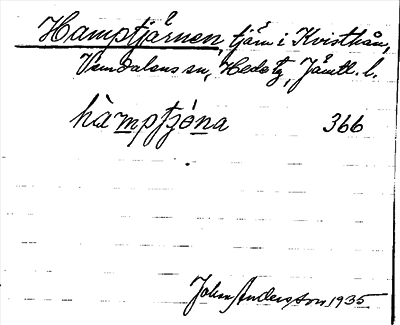 Hamptjärnen, tjärn i Kvisthån,
Vemdalens sn, Hede tg, Jämtl. l.
hàmptjö́na 366
John Andersson 1935